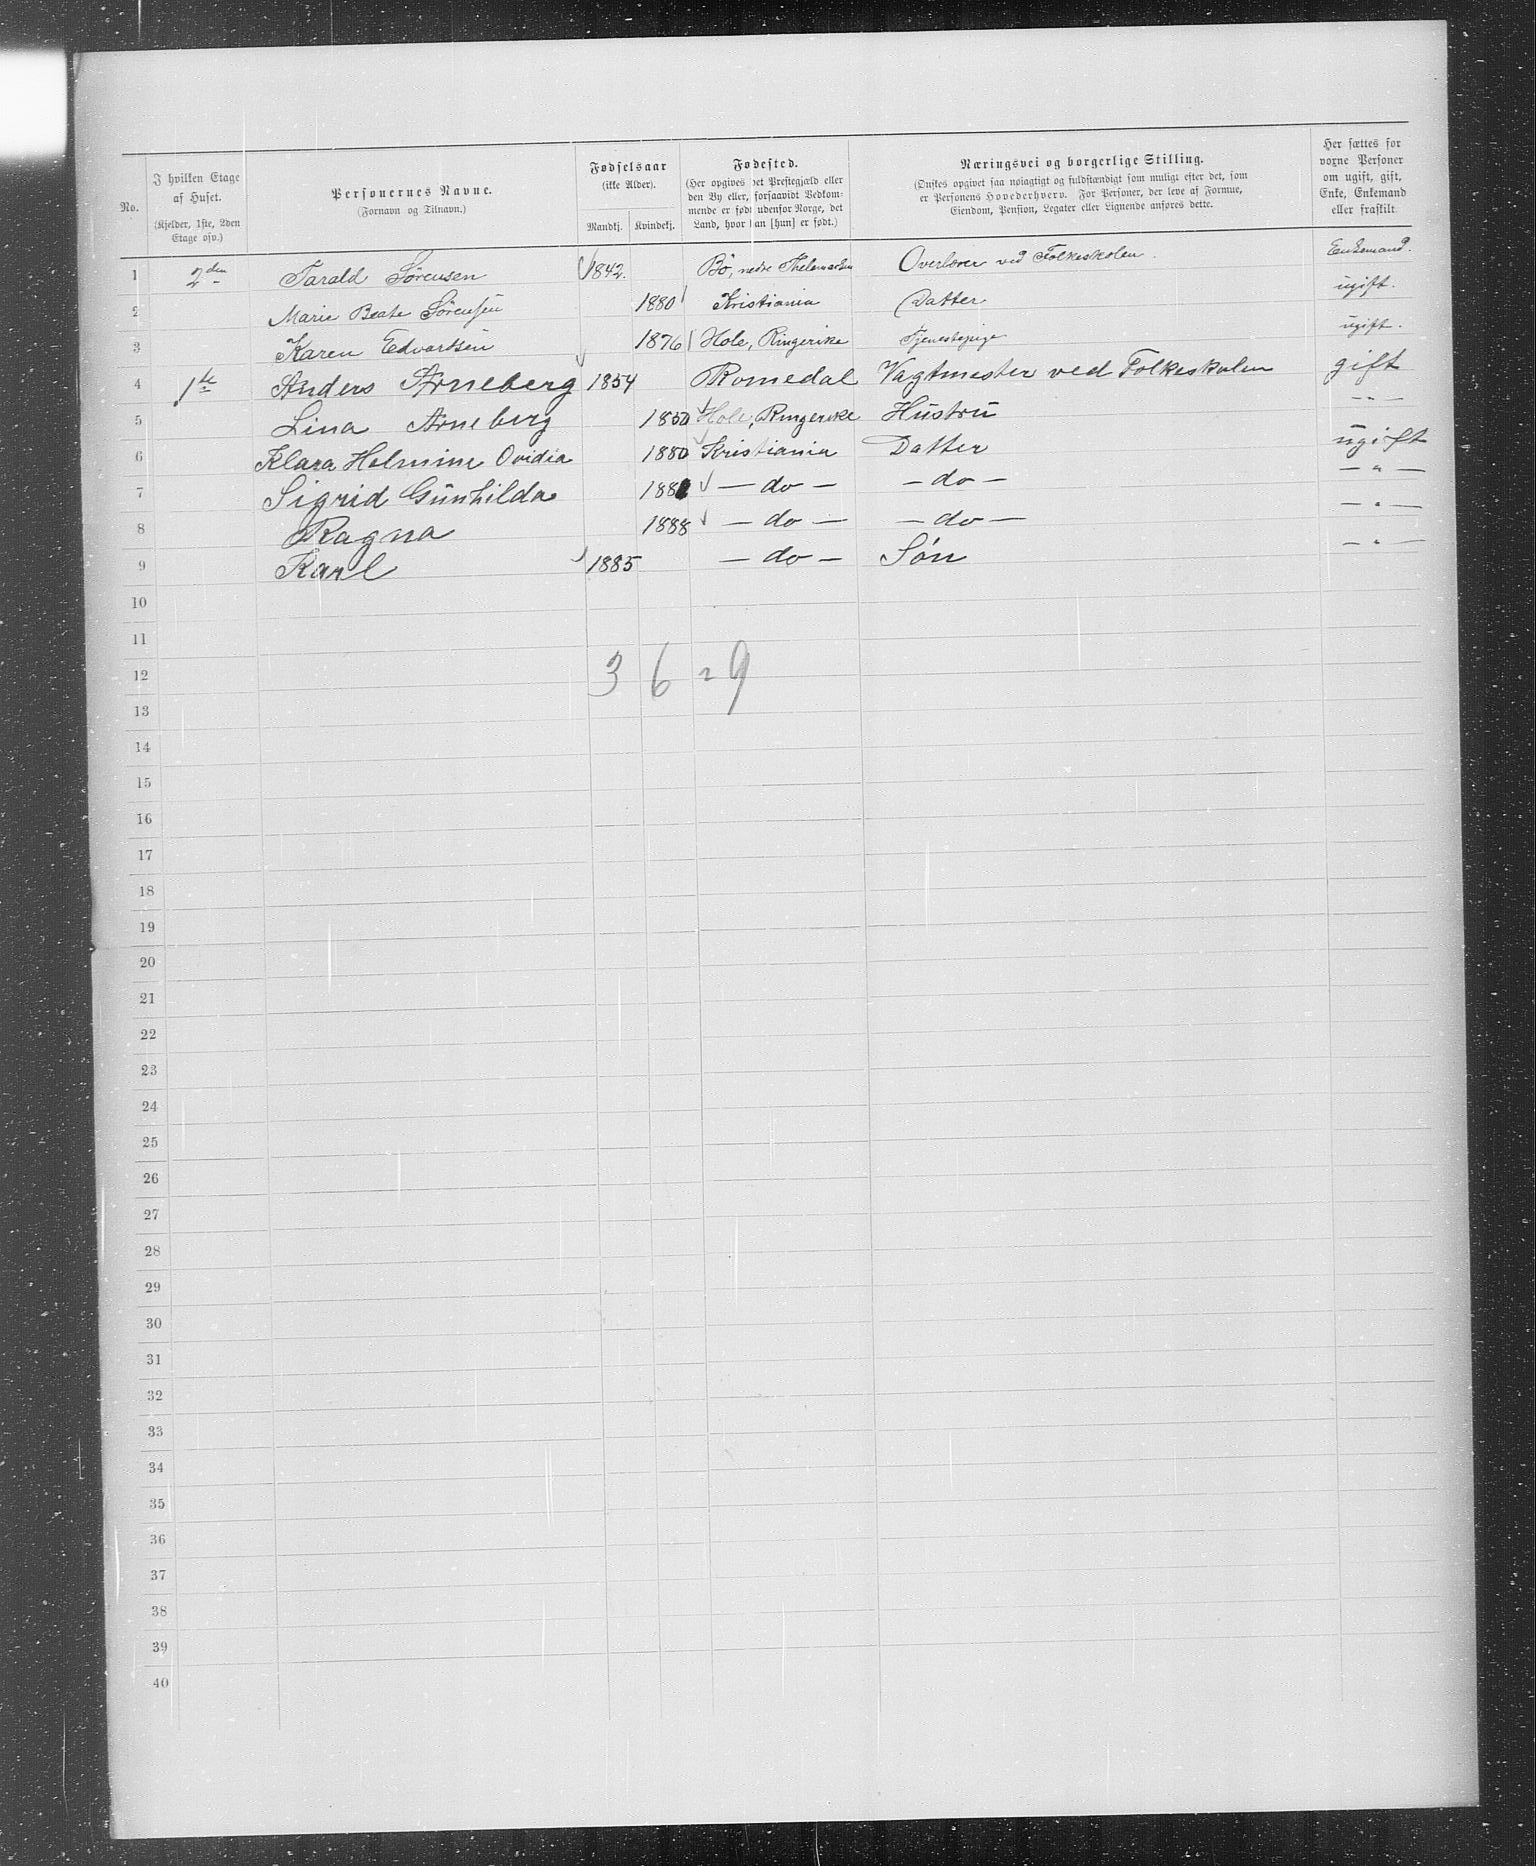 No.
I hvilken Etage af Huset. (Kjelder, 1ste, 2den Etage osv.)
Personernes Navne. (Fornavn og Tilnavn.)
Fødselsaar (ikke Alder). Mandkj. Kvindekj.
Fødested. (Her opgives det Prestegjæld eller den By eller, forsaavidt Vedkommende er født udenfor Norge, det Land, hvor han [hun] er født.)
Næringsvei og borgerlige Stilling. (Ønskes opgivet saa nøiagtigt og fuldstændigt som muligt efter det, som er Personens Hovederhverv. For Personer, der leve af Formue, Eiendom, Pension, Legater eller Lignende anføres dette.
Her sættes for voxne Personer om ugift, gift, Enke, Enkemand eller fraskilt.
1 2den Tarald Sørensen 1842. Bö, nedre Thelemarken Overlærer ved Folkeskolen. Enkemand.
2 Marie Beate Sørensen 1880 Kristiania Datter ugift.
3 Karen Edvartsen 1876 Hole, Ringerike Tjenestepige ugift.
4 1ste Anders Arneberg 1854 Romedal Vagtmester ved Folkeskolen gift
5 Lina Arneberg 1850 Hole, Ringerike Hustru — " —
6 Klara Helmine Ovidia 1880 Kristiania Datter ugift
7 Sigrid Gunhilda 188 — do — — do — — " —
8 Ragna 1888 — do — — do — — " —
9 Karl 1885 — do — Søn — " —
10
11
12 3 6 = 9
13
14
15
16
17
18
19
20
21
22
23
24
25
26
27
28
29
30
31
32
33
34
35
36
37
38
39
40